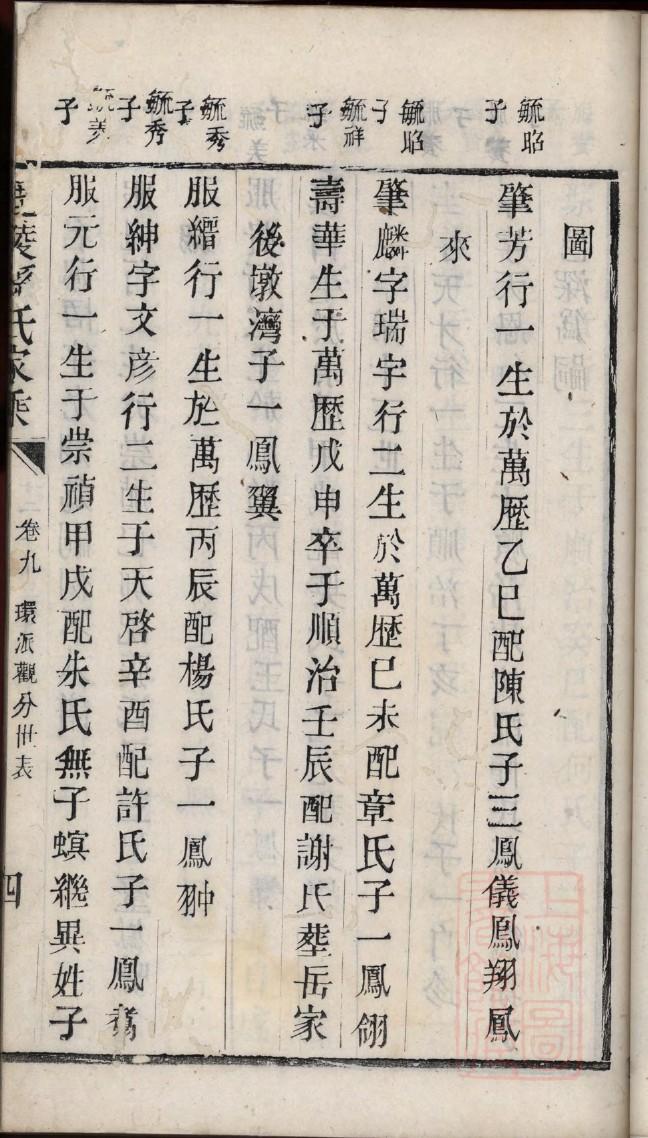 圖
毓昭子
肇芳行一生於萬歷乙巳配陳氏子三鳳儀鳳翔鳳
來
毓昭子
肇麟字瑞宇行二生於萬歷己未配章氏子一鳳翎
毓祥子
壽華生于萬歷戊申卒于順治壬辰配謝氏塟岳家
後墩濟子一鳳翼
毓秀子
服縉行一生於萬歷丙辰配楊氏子一鳳翀
毓秀子
服紳字文彦行二生于天啓辛酉配許氏子一鳳翥
毓美子
服元行一生于崇禎甲戌配朱氏無子螟繼異姓子
氏家乘
卷九
環派觀分世表
四